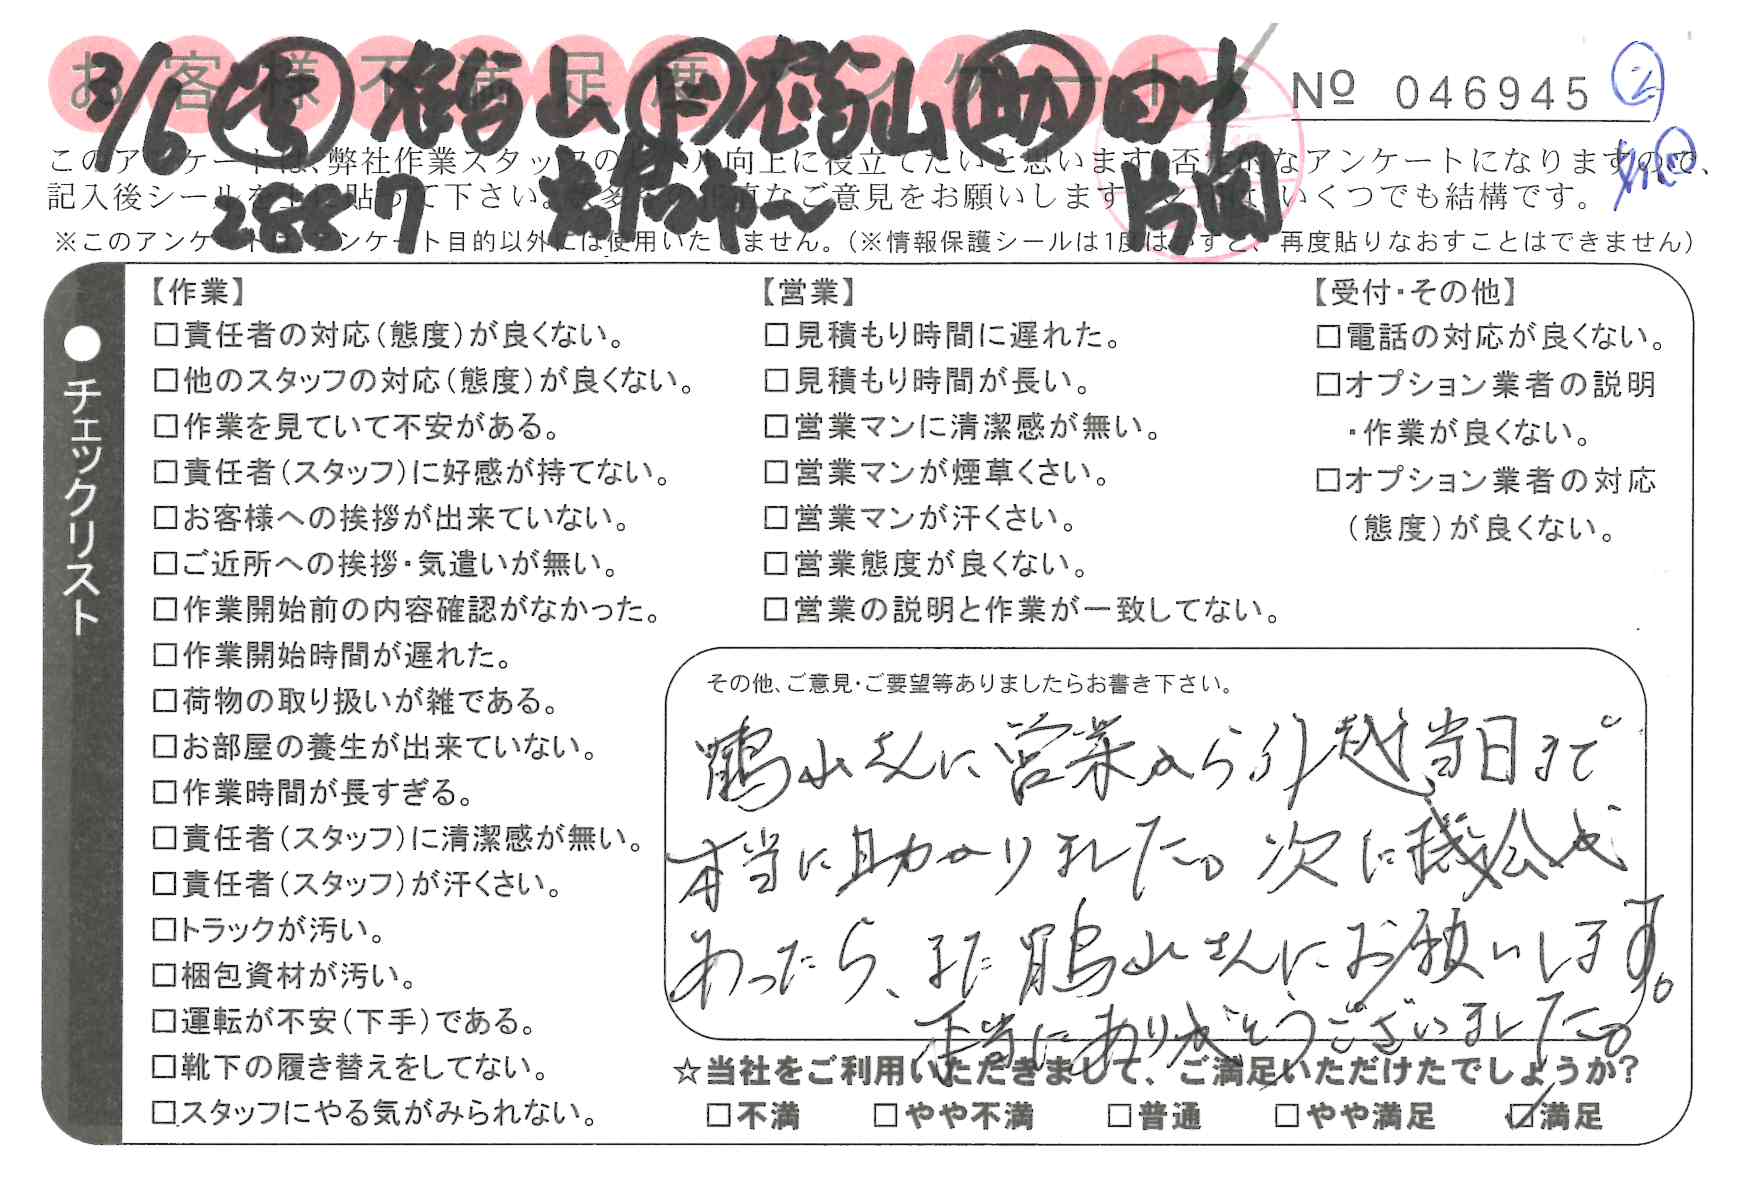 お客様不満足度アンケート
3/6 営 鶴山 鶴山 助 田中
2887 片岡
No 046945 ②
このアンケートは、弊社作業スタッフのレベル向上に役立てたいと思います。否定的なアンケートになりますので、
記入後シールを上に貼って下さい。いくつでも結構です。
※このアンケートはアンケート目的以外には使用いたしません。（※情報保護シールは1度はがすと、再度貼りなおすことはできません）
●チェックリスト
【作業】
□責任者の対応（態度）が良くない。
□他のスタッフの対応（態度）が良くない。
□作業を見ていて不安がある。
□責任者（スタッフ）に好感が持てない。
□お客様への挨拶が出来ていない。
□ご近所への挨拶・気遣いが無い。
□作業開始前の内容確認がなかった。
□作業開始時間が遅れた。
□荷物の取り扱いが雑である。
□お部屋の養生が出来ていない。
□作業時間が長すぎる。
□責任者（スタッフ）に清潔感が無い。
□責任者（スタッフ）が汗くさい。
□トラックが汚い。
□梱包資材が汚い。
□運転が不安（下手）である。
□靴下の履き替えをしてない。
□スタッフにやる気がみられない。
【営業】
□見積もり時間に遅れた。
□見積もり時間が長い。
□営業マンに清潔感が無い。
□営業マンが煙草くさい。
□営業マンが汗くさい。
□営業態度が良くない。
□営業の説明と作業が一致してない。
【受付・その他】
□電話の対応が良くない。
□オプション業者の説明
・作業が良くない。
□オプション業者の対応
（態度）が良くない。
その他、ご意見・ご要望等ありましたらお書き下さい。
鶴山さんに営業から引越当日まで
本当に助かりました。次に機会が
あったら、また鶴山さんにお願いします。
本当にありがとうございました。
☆当社をご利用いただきまして、ご満足いただけたでしょうか？
□不満 □やや不満 □普通 □やや満足 ☑満足